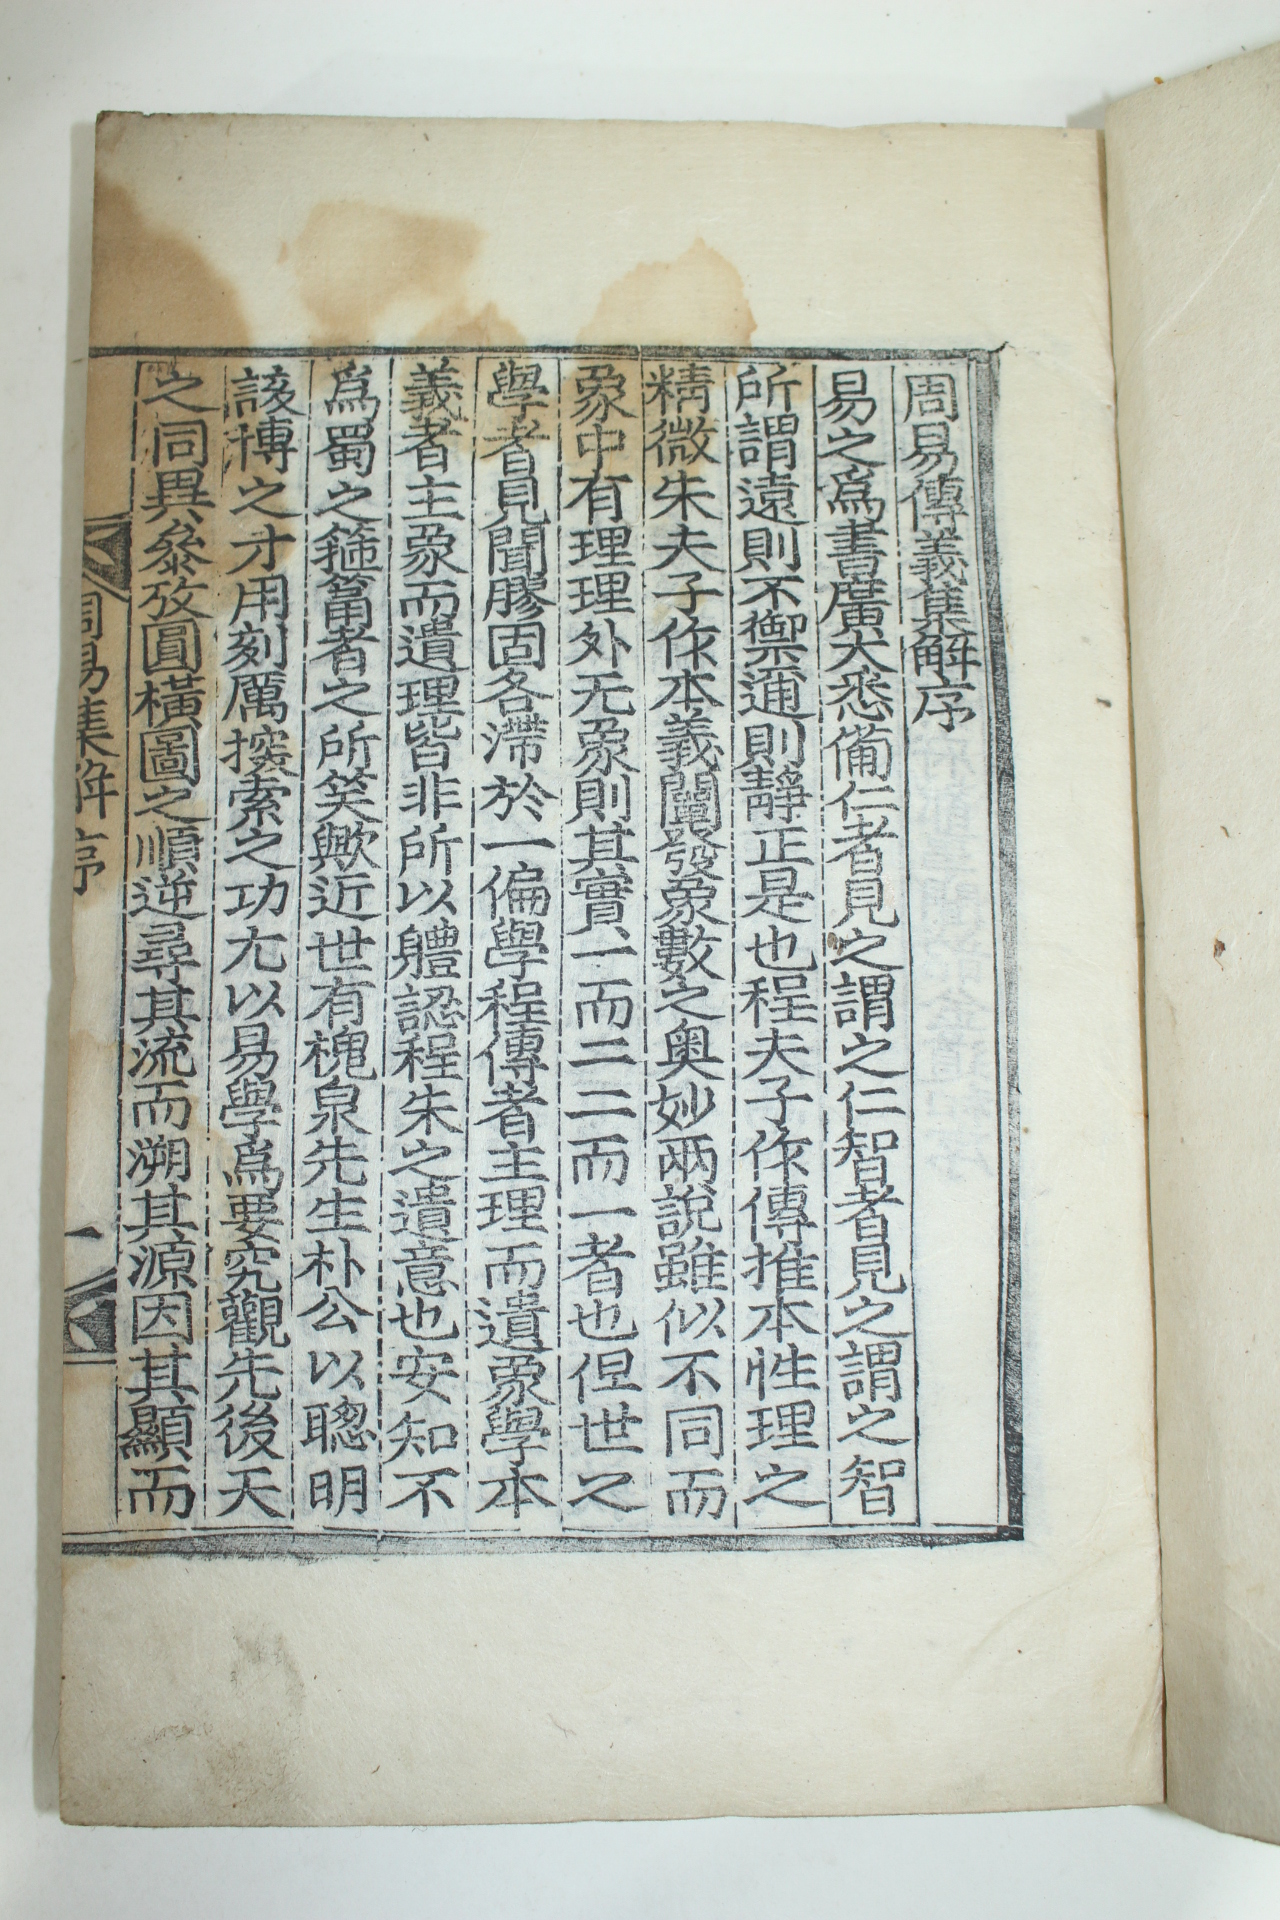 周易傳義集解序
易之爲書廣大悉備仁者見之謂之仁智者見之謂之智
所謂遠則不禦邇則靜正是也程夫子作傳推本性理之
精微朱夫子作本義闡發象數之奧妙兩說雖似不同而
象中有理理外无象則其實一而二二而一者也但世之
學者見聞膠固各滯於一偏學程傳者主理而遺象學本
義者主象而遺理皆非所以軆認程朱之遺意也安知不
爲蜀之箍篅者之所笑歟近世有槐泉先生朴公以聰明
該博之才用刻厲探索之功尢以易學爲要究觀先後天
之同異叅攷圓橫圖之順逆尋其流而溯其源因其顯而
周易集解序
一